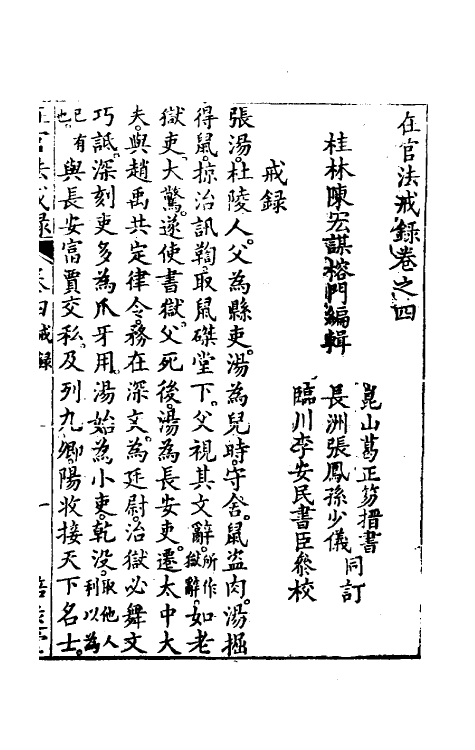 在官法戒錄卷之四
桂林陳宏謀榕門編輯
崑山葛正笏搢書
長洲張鳳孫少儀 同訂
臨川李安民書臣參校
戒錄
張湯。杜陵人。父為縣吏。湯為兒時。守舍。鼠盜肉。湯掘
得鼠。掠治訊鞫。取鼠磔堂下。父視其文辭。所作獄辭。如老
獄吏。大驚。遂使書獄。父死後。湯為長安吏。遷太中大
夫。與趙禹共定律令。務在深文。為廷尉。治獄必舞文
巧詆。深刻吏多為爪牙用。湯始為小吏。乾沒。取他人利以為
已有也。與長安富賈交私。及列九卿。陽收接天下名士。
在官法戒錄 卷四戒錄 一